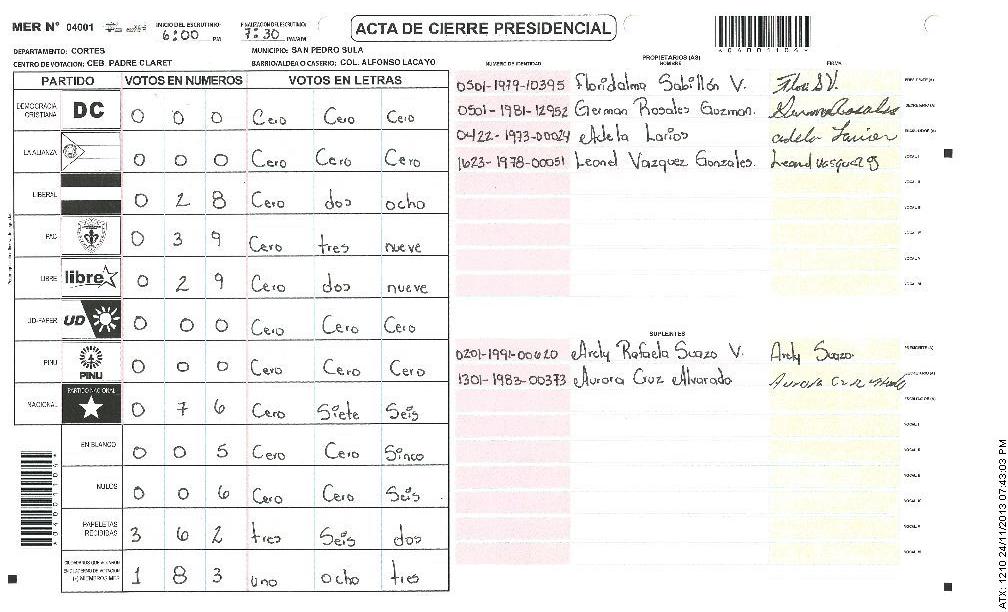 MER N° 04001 INICIO DEL ESCRUTINIO: 6:00 PM FINALIZACION DEL ESCRUTINIO: 7:30 PM/AM
ACTA DE CIERRE PRESIDENCIAL
DEPARTAMENTO: CORTES MUNICIPIO: SAN PEDRO SULA
CENTRO DE VOTACION: CEB. PADRE CLARET BARRIO/ALDEA O CASERIO: COL. ALFONSO LACAYO
PARTIDO VOTOS EN NUMEROS VOTOS EN LETRAS
DEMOCRACIA CRISTIANA DC 0 0 0 Cero Cero Cero
LA ALIANZA 0 0 0 Cero Cero Cero
LIBERAL 0 2 8 Cero dos ocho
PAC 0 3 9 Cero tres nueve
LIBRE libre 0 2 9 Cero dos nueve
UD-FAPER UD 0 0 0 Cero Cero Cero
PINU PINU 0 0 0 Cero Cero Cero
NACIONAL PARTIDO NACIONAL 0 7 6 Cero Siete Seis
EN BLANCO 0 0 5 Cero Cero Sinco
NULOS 0 0 6 Cero Cero Seis
PAPELETAS RECIBIDAS 3 6 2 tres Seis dos
1 8 3 uno ocho tres
PROPIETARIOS (AS)
NUMERO DE IDENTIDAD NOMBRE FIRMA
0501-1979-10395 Floridalma Sabillón V. Flori S V.
0501-1981-12952 German Rosales Guzman.
0422-1973-00024 Adela Larios
1623-1978-00051 Leonel Vazquez Gonzales.
SUPLENTES
0201-1991-00620 Arely Rafaela Suazo V. Arely Suazo
1301-1983-00373 Aurora Cruz Alvarado
ATX: 1210 24/11/2013 07:43:03 PM